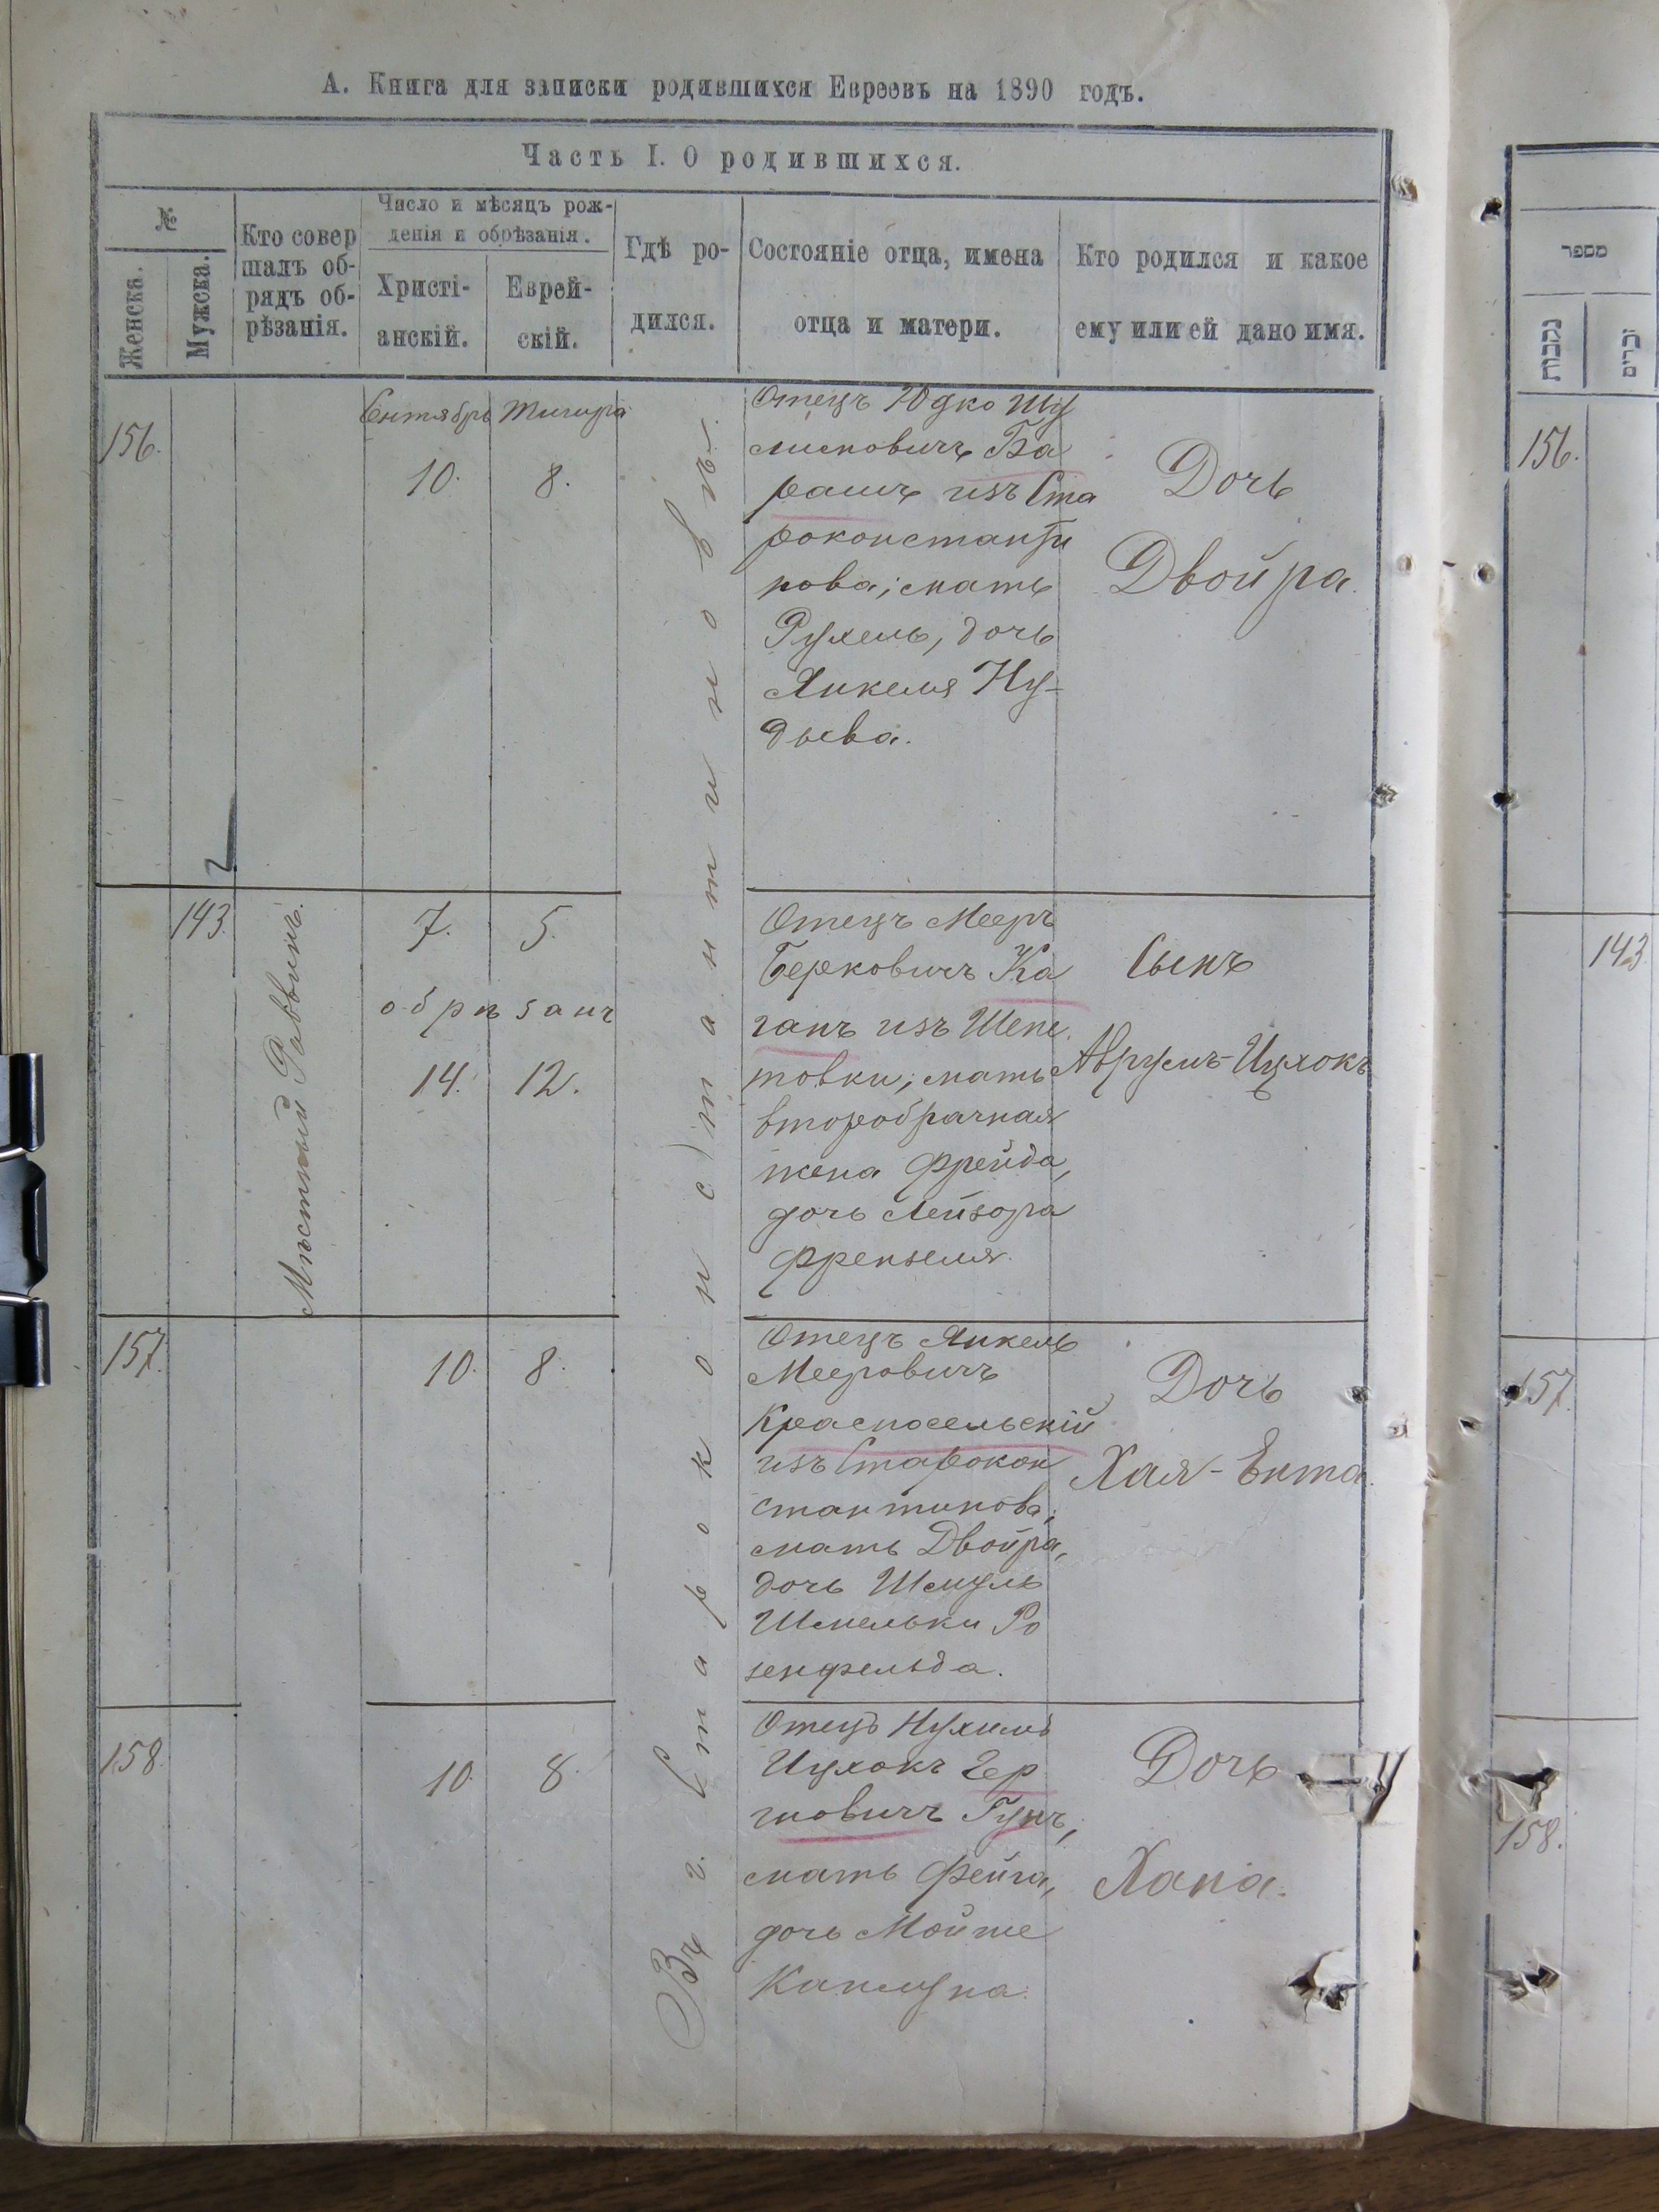 А. Книга для записки родившихся Евреевъ на 1890 годъ.
Часть I. О родившихся.
№
Женска.
Мужска.
Кто совер
шалъ об-
рядъ об-
рѣзанія.
Число и мѣсяцъ рож-
денія и обрѣзанія.
Христі-
анскій.
Еврей-
скій.
Гдѣ ро-
дился.
Состояніе отца, имена
отца и матери.
Кто родился и какое
ему или ей дано имя.
Въ г. Староконстантиновѣ.
156.
Сентябрь Тишра
10. 8.
Отецъ Юдко Шу
лимовичъ Ба
рашъ изъ Ста
роконстанти
нова; мать
Рухель, дочь
Янкеля Ну-
дыева.
Дочь
Двойра.
143.
Мѣстный Раввинъ.
7. 5.
обрѣзанъ
14. 12.
Отецъ Мееръ
Берковичъ Ка
ганъ изъ Шепе
товки; мать
второбрачная
жена Фрейда,
дочь Лейзора
Френзеля.
Сынъ
Аврумъ-Ицхокъ
157.
10. 8.
Отецъ Янкель
Мееровичъ
Красносельскій
изъ Старокон
стантинова;
мать Двойра,
дочь Шмуль
Шмельки Ро
зенфельда.
Дочь
Хая-Ента.
158.
10. 8.
Отецъ Нухимъ
Ицхокъ Гер
шовичъ Гунъ,
мать Фейга,
дочь Мойше
Дочь
Хана.
מספר
נקבות
זכרים
156.
143
157.
158.